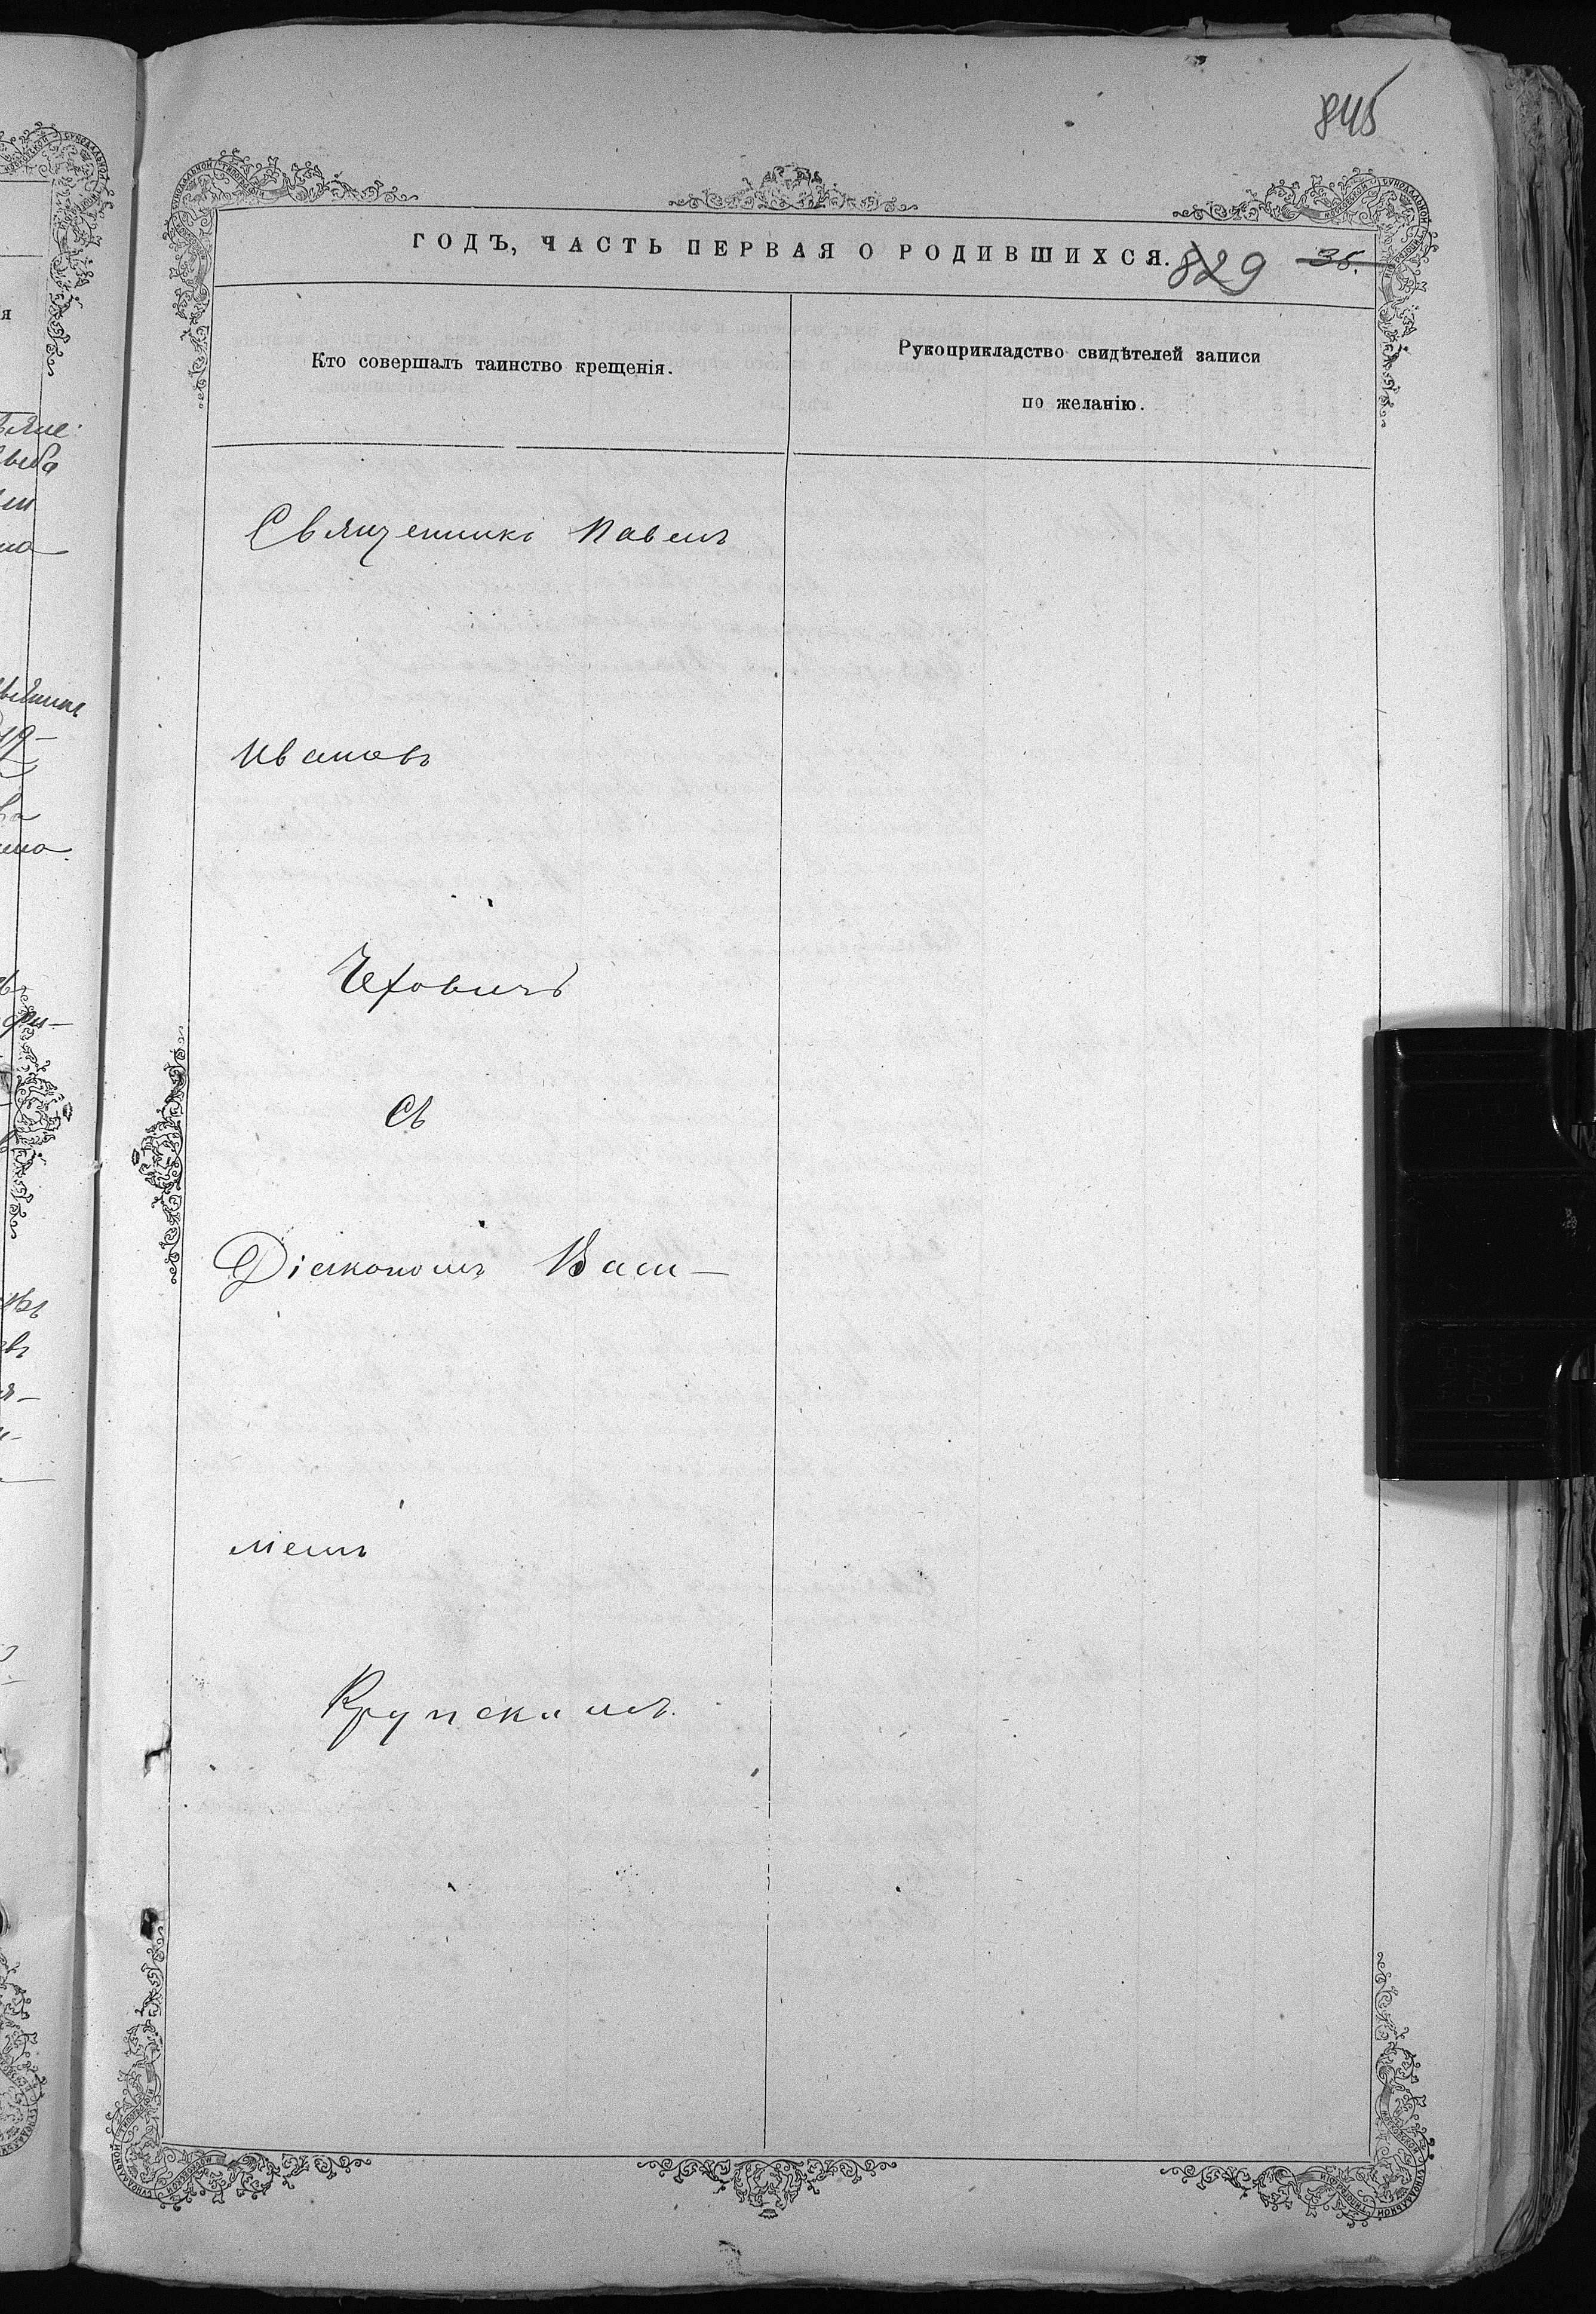 845
ГОДЪ, ЧАСТЬ ПЕРВАЯ О РОДИВШИХСЯ.
829
35.
Кто совершалъ таинство крещенія.
Рукоприкладство свидѣтелей записи
по желанію.
Священникъ Павелъ
Ивановъ
Чеховичъ
Съ
Діакономъ Васи-
ліемъ
Крупскимъ.